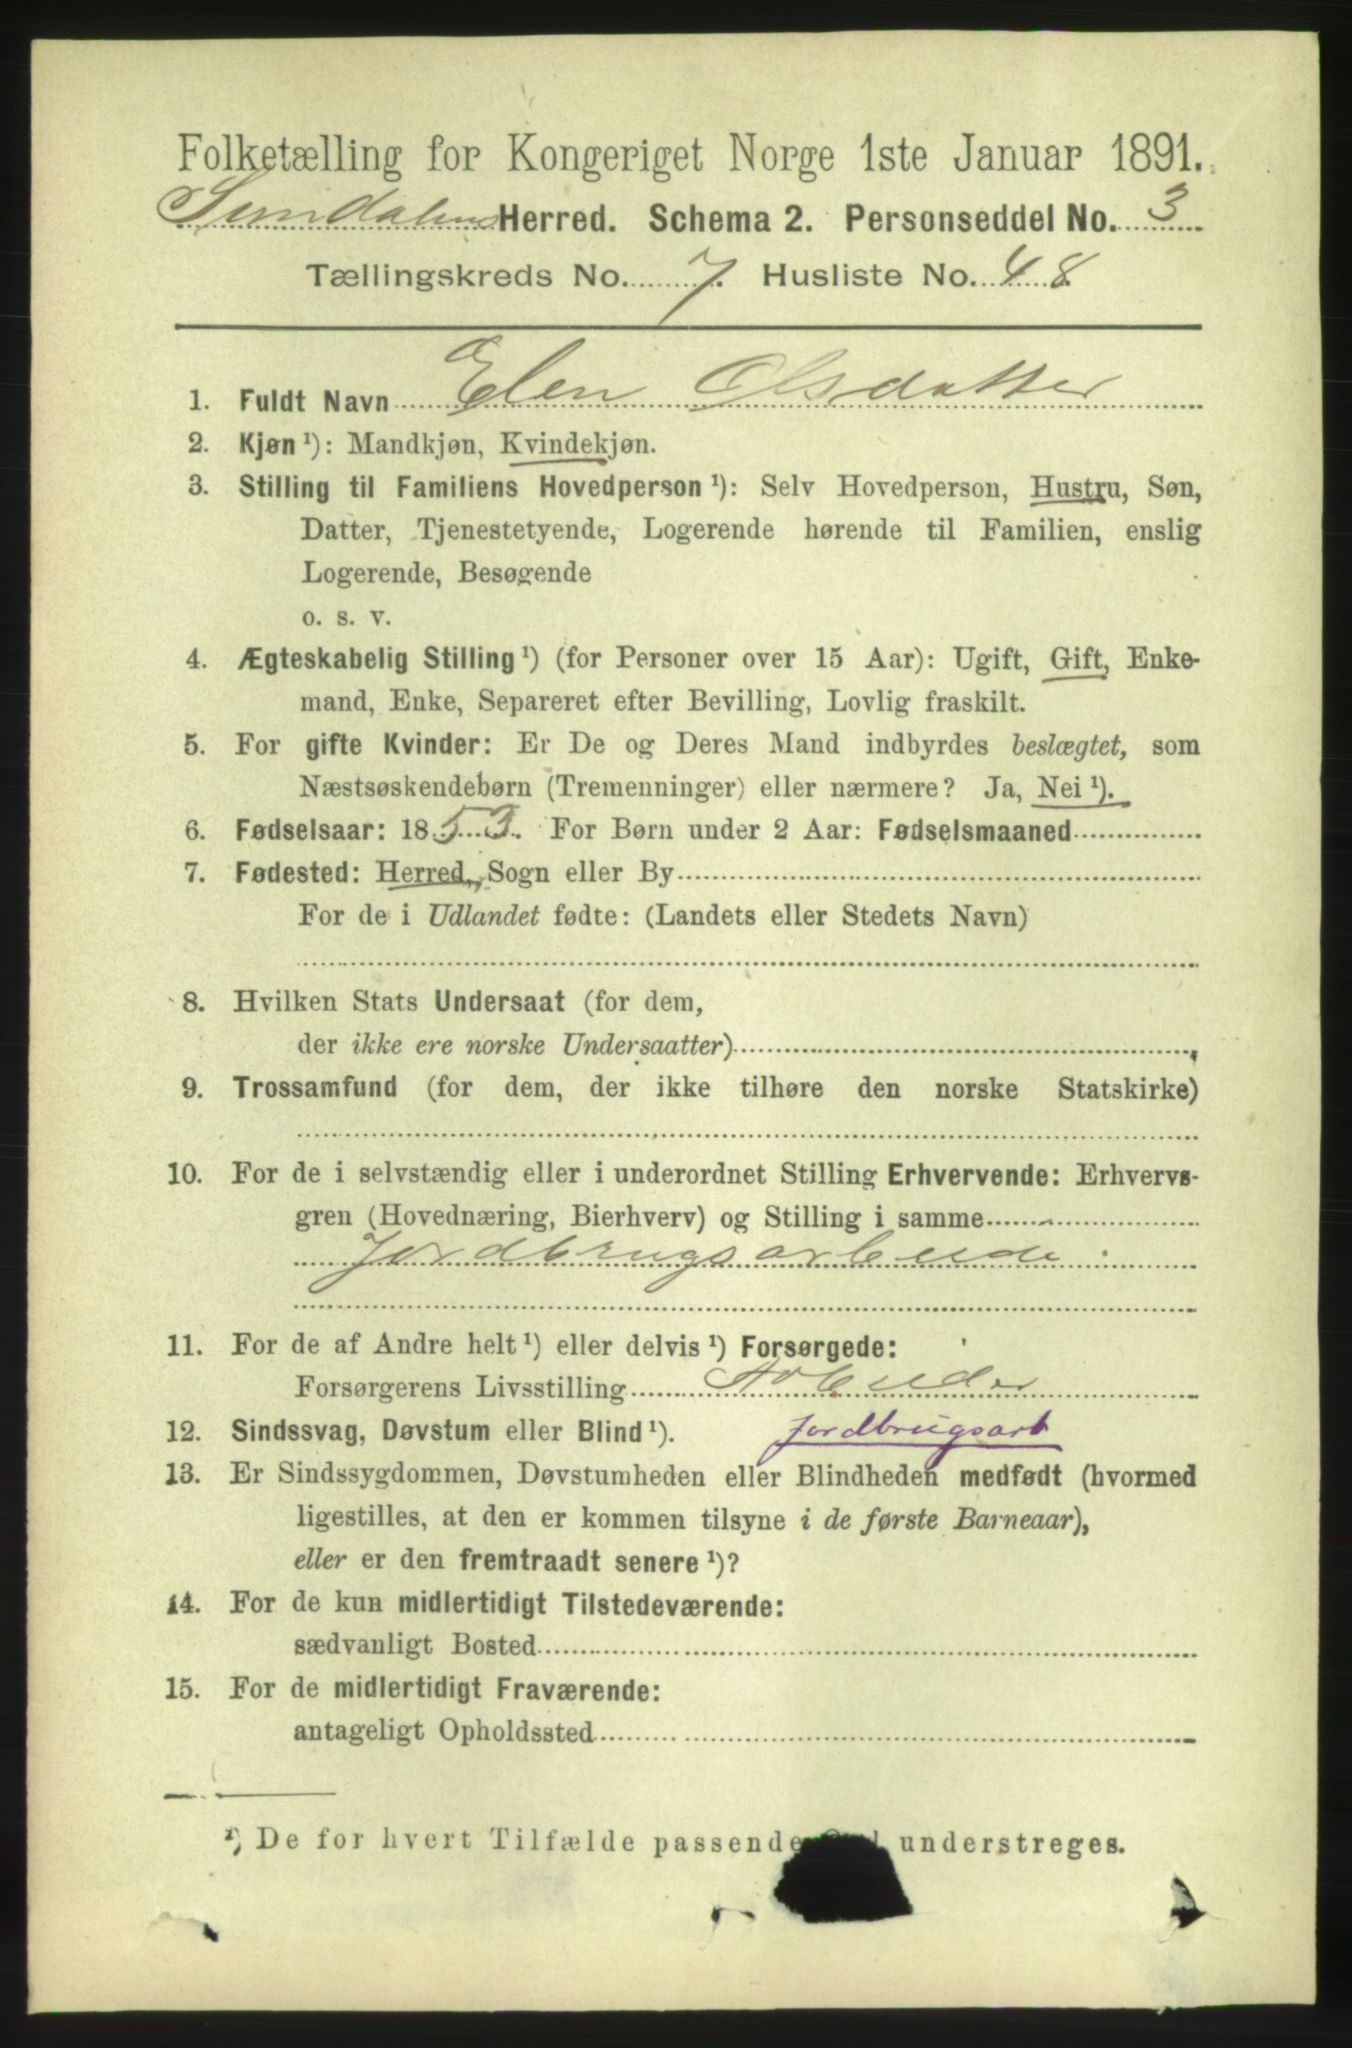 Folketælling for Kongeriget Norge 1ste Januar 1891.
Sundalens Herred. Schema 2. Personseddel No. 3
Tællingskreds No. 7. Husliste No. 48.
1. Fuldt Navn Elen Olsdatter
2. Kjøn ¹): Mandkjøn, Kvindekjøn.
3. Stilling til Familiens Hovedperson ¹): Selv Hovedperson, Hustru, Søn,
Datter, Tjenestetyende, Logerende hørende til Familien, enslig
Logerende, Besøgende
o. s. v.
4. Ægteskabelig Stilling ¹) (for Personer over 15 Aar): Ugift, Gift, Enke-
mand, Enke, Separeret efter Bevilling, Lovlig fraskilt.
5. For gifte Kvinder: Er De og Deres Mand indbyrdes beslægtet, som
Næstsøskendebørn (Tremenninger) eller nærmere? Ja, Nei ¹).
6. Fødselsaar: 1853. For Børn under 2 Aar: Fødselsmaaned
7. Fødested: Herred, Sogn eller By
For de i Udlandet fødte: (Landets eller Stedets Navn)
8. Hvilken Stats Undersaat (for dem,
der ikke ere norske Undersaatter)
9. Trossamfund (for dem, der ikke tilhøre den norske Statskirke)
10. For de i selvstændig eller i underordnet Stilling Erhvervende: Erhvervs-
gren (Hovednæring, Bierhverv) og Stilling i samme
Jordbrugsarbeide
11. For de af Andre helt ¹) eller delvis ¹) Forsørgede:
Forsørgerens Livsstilling Arbeider
12. Sindssvag, Døvstum eller Blind ¹). Jordbrugsarb
13. Er Sindssygdommen, Døvstumheden eller Blindheden medfødt (hvormed
ligestilles, at den er kommen tilsyne i de første Barneaar),
eller er den fremtraadt senere ¹)?
14. For de kun midlertidigt Tilstedeværende:
sædvanligt Bosted
15. For de midlertidigt Fraværende:
antageligt Opholdssted
¹) De for hvert Tilfælde passende understreges.